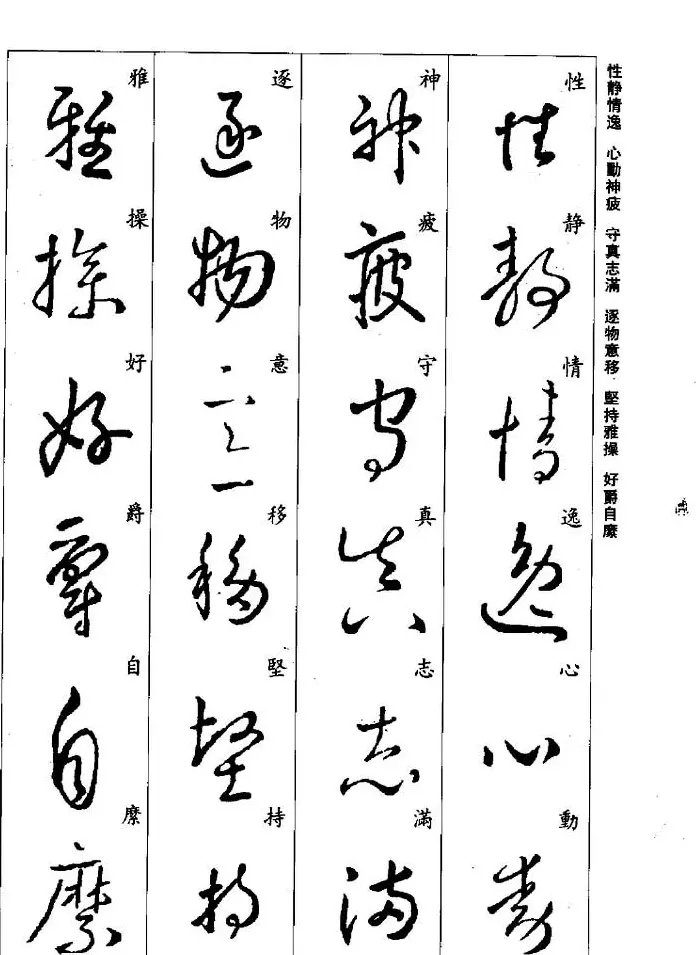 性静情逸　心動神疲　守真志滿　逐物意移　堅持雅操　好爵自縻
性静情逸心動
神疲守真志滿
逐物意移堅持
雅操好爵自縻